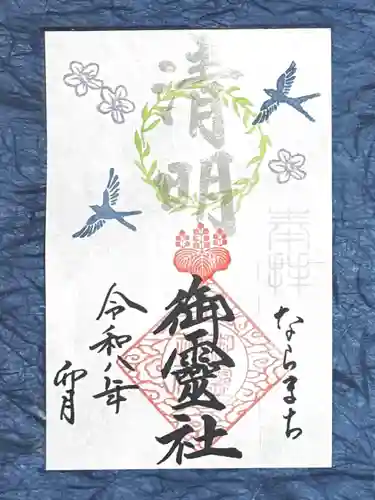 清明
奉拝
ならまち
御霊社
令和八年
卯月